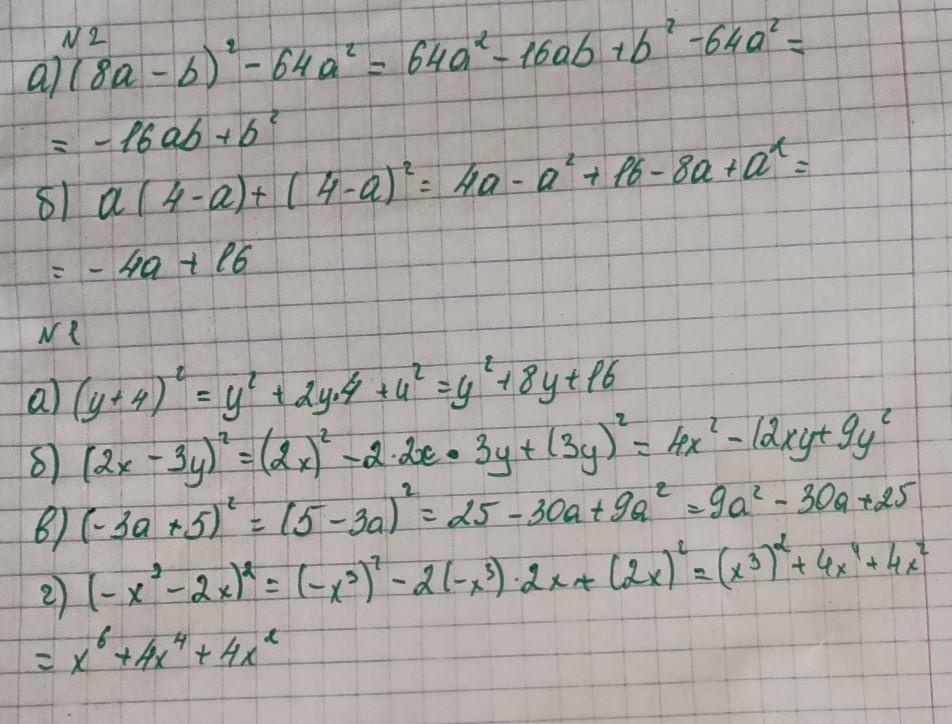 N2
а) (8a - b)² - 64a² = 64a² - 16ab + b² - 64a² =
= -16ab + b²
б) a(4-a) + (4-a)² = 4a - a² + 16 - 8a + a² =
= -4a + 16
N1
а) (y+4)² = y² + 2y·4 + 4² = y² + 8y + 16
б) (2x - 3y)² = (2x)² - 2·2x·3y + (3y)² = 4x² - 12xy + 9y²
в) (-3a + 5)² = (5 - 3a)² = 25 - 30a + 9a² = 9a² - 30a + 25
г) (-x³ - 2x)² = (-x³)² - 2(-x³)·2x + (2x)² = (x³)² + 4x⁴ + 4x²
= x⁶ + 4x⁴ + 4x²